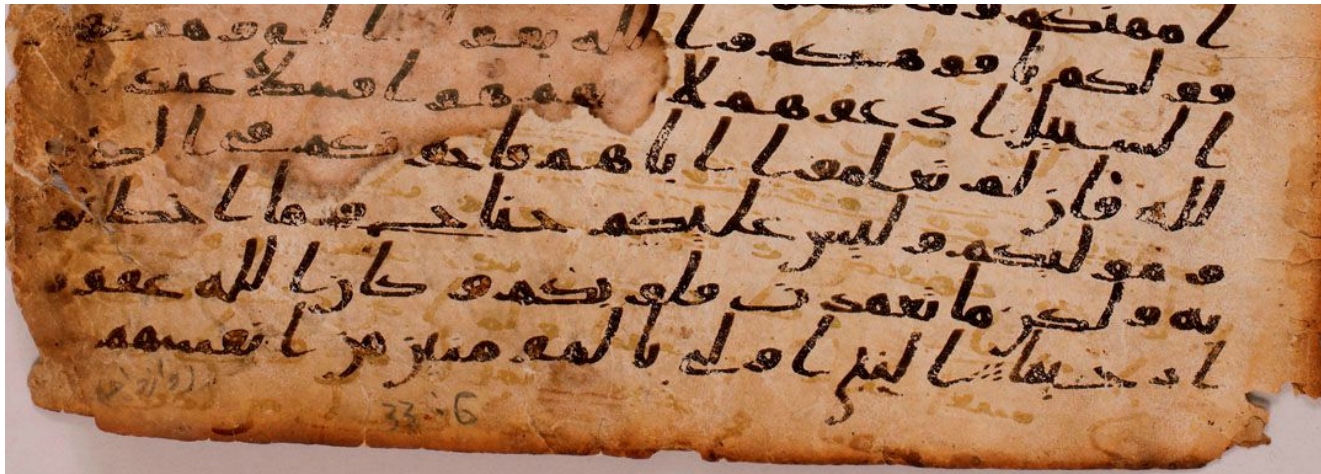 قولكم بافوهكم والله يقول الحق وهو يهدي
السبيل ادعوهم لابائهم هو اقسط عند ا
لله فان لم تعلموا اباهم فاخونكم في الدين
و موليكم و ليس عليكم جناح فيما اخطاتم
به ولكن ما تعمدت قلوبكم و كان الله غفور
ا رحيما النبي اولي بالمومنين من انفسهم
33:6